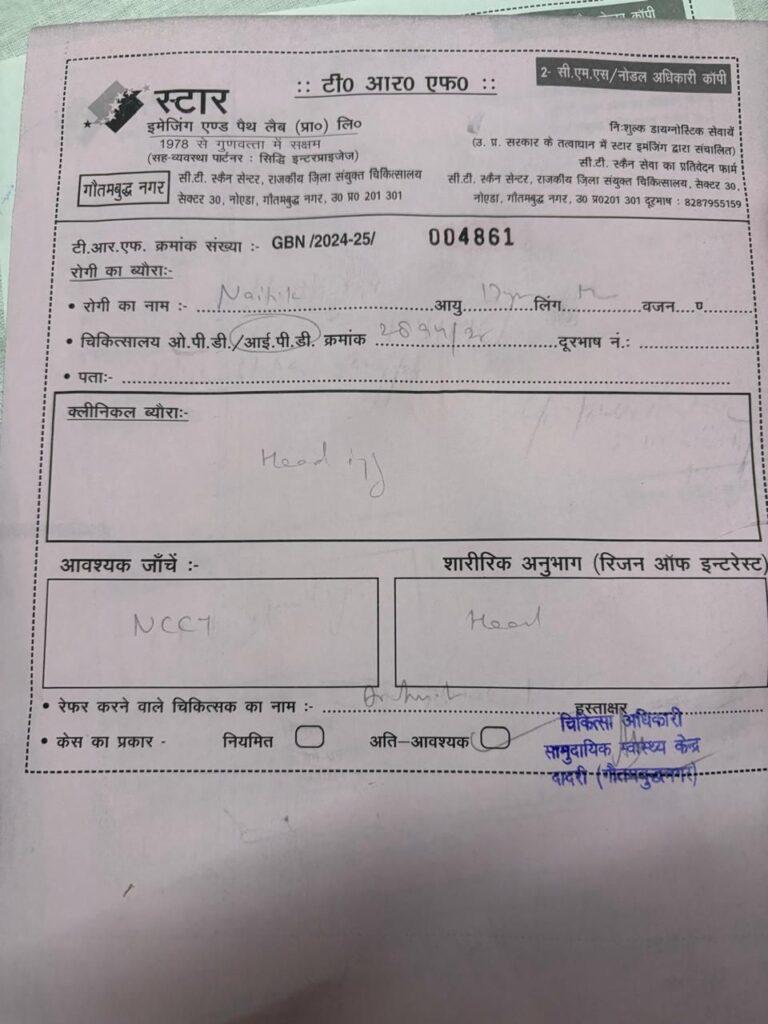 :: टी0 आर0 एफ0 ::
2- सी.एम.एस/नोडल अधिकारी कॉपी
स्टार
इमेजिंग एण्ड पैथ लैब (प्रा०) लि०
1978 से गुणवत्ता में सक्षम
(सह-व्यवस्था पार्टनर : सिद्धि इन्टरप्राइजेज)
निःशुल्क डायग्नोस्टिक सेवायें
(उ. प्र. सरकार के तत्वाधान में स्टार इमजिंग द्वारा संचालित)
सी.टी. स्कैन सेवा का प्रतिवेदन फार्म
गौतमबुद्ध नगर
सी.टी. स्कैन सेन्टर, राजकीय ज़िला संयुक्त चिकित्सालय
सेक्टर 30, नोएडा, गौतमबुद्ध नगर, उ0 प्र0 201 301
सी.टी. स्कैन सेन्टर, राजकीय ज़िला संयुक्त चिकित्सालय, सेक्टर 30,
नोएडा, गौतमबुद्ध नगर, उ0 प्र0201 301 दूरभाष : 8287955159
टी.आर.एफ. क्रमांक संख्या :- GBN /2024-25/ 004861
रोगी का ब्यौरा:-
• रोगी का नाम :- Naitik आयु लिंग M वजन
• चिकित्सालय ओ.पी.डी./आई.पी.डी. क्रमांक दूरभाष नं.:
• पता:-
क्लीनिकल ब्यौरा:-
Head inj
आवश्यक जाँचें :-
शारीरिक अनुभाग (रिजन ऑफ इन्टरेस्ट)
NCCT
Head
• रेफर करने वाले चिकित्सक का नाम :- Dr हस्ताक्षर
• केस का प्रकार - नियमित अति-आवश्यक
चिकित्सा अधिकारी
सामुदायिक स्वास्थ्य केन्द्र
दादरी (गौतमबुद्धनगर)